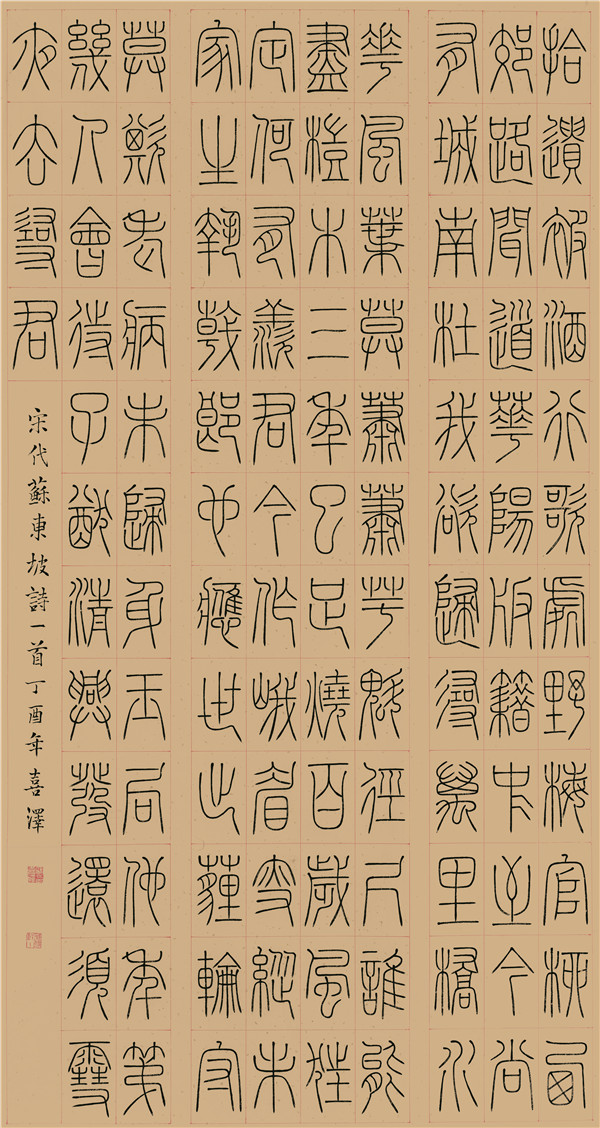 拾遺被酒行歌處野梅官柳西
郊路聞道華陽版籍中至今尚
有城南杜我欲歸尋萬里橋水
花風葉莫蕭蕭芋魁徑尺誰能
盡榿木三年已足燒百歲風狂
定何有羨君今作峨眉叟縱未
家生執戟郎也應世出薶輪守
莫欺老病未歸身玉局他年第
幾人會待子猷清興發還須雪
夜去尋君
宋代蘇東坡詩一首丁酉年喜澤